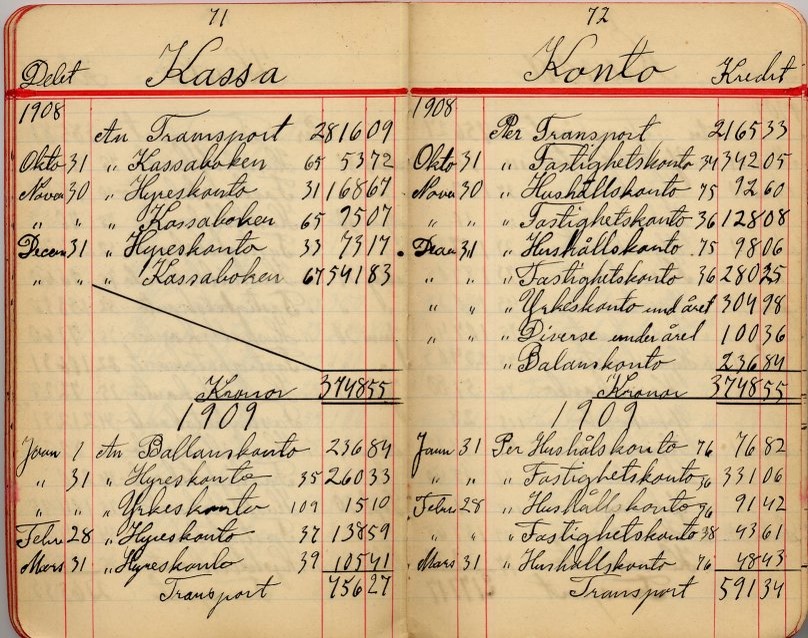 71
Debet Kassa
1908
An Transport 2816 09
Okto 31 " Kassaboken 65 53 72
Nove 30 " Hyreskonto 31 168 67
" " " Kassaboken 65 95 07
Decem 31 " Hyreskonto 33 73 17
" " " Kassaboken 67 541 83
Kronor 3748 55
1909
Janu 1 An Ballanskonto 236 84
" 31 " Hyreskonto 35 260 33
" " " Yrkeskonto 109 15 10
Febru 28 " Hyreskonto 37 138 59
Mars 31 " Hyreskonto 39 105 41
Transport 756 27
72
Konto Kredit
1908
Per Transport 2165 33
Okto 31 " Fastighetskonto 34 342 05
Nove 30 " Hushållskonto 75 92 60
" " " Fastighetskonto 36 128 08
31 " Hushållskonto 75 98 06
" " " Fastighetskonto 36 280 25
" " " Yrkeskonto und året 304 98
" " " Diverse under året 100 36
" Balanskonto 236 84
Kronor 3748 55
1909
Janu 31 Per Hushålskonto 76 76 82
" " Fastighetskonto 36 331 06
Febru 28 " Hushållskonto 76 91 42
" " " Fastighetskonto 38 43 61
Mars 31 " Hushållskonto 76 48 43
Transport 591 34